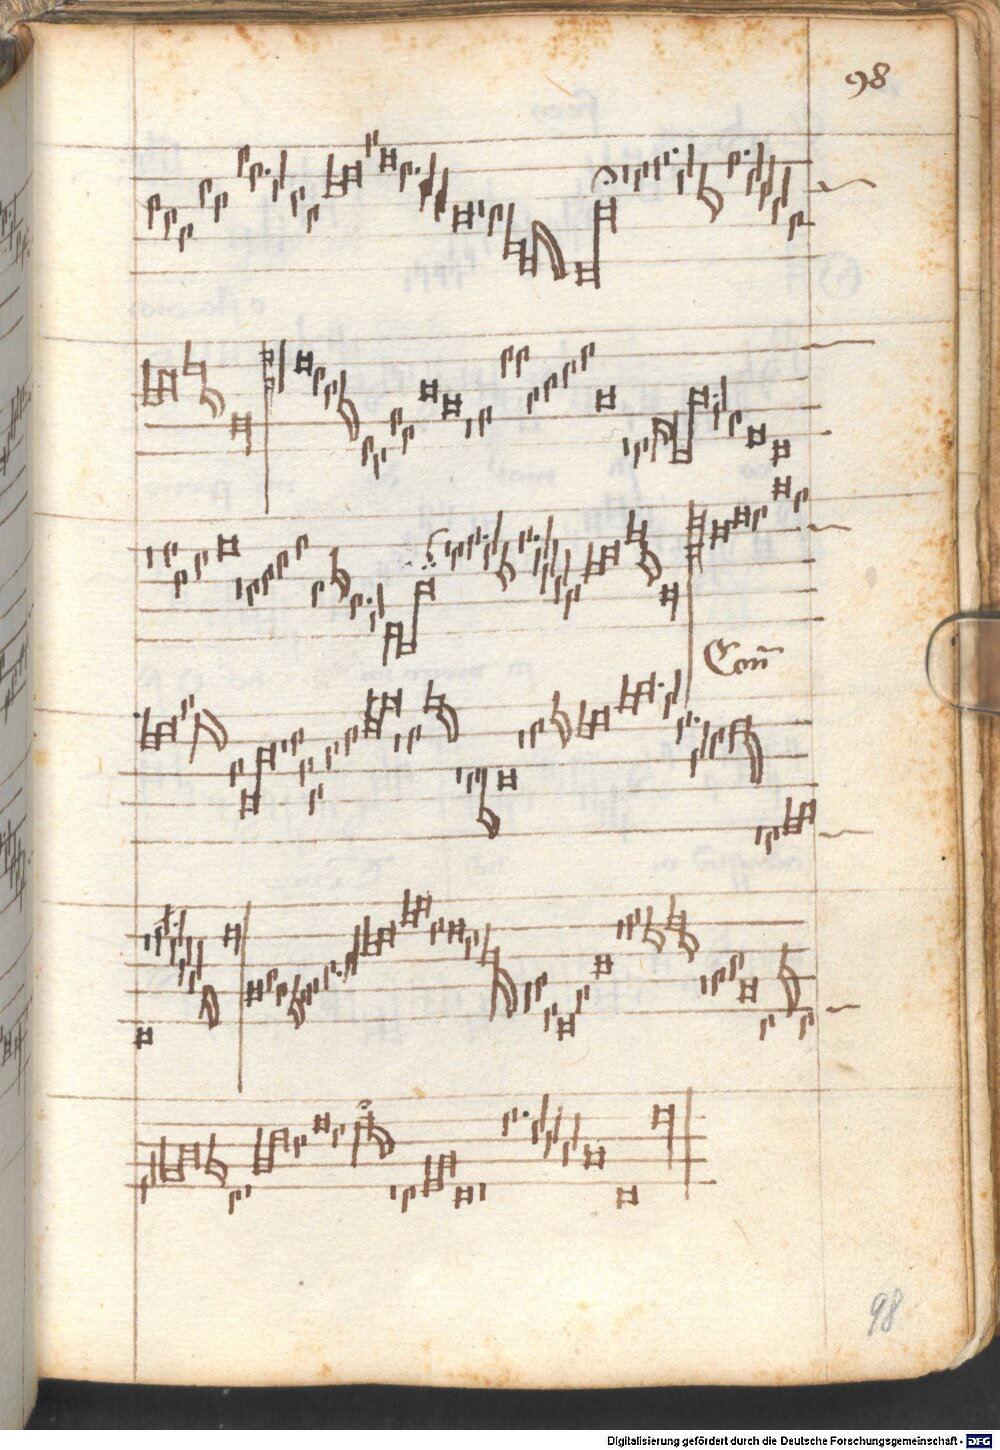 98
Con̄
98
Digitalisierung gefördert durch die Deutsche Forschungsgemeinschaft - DFG